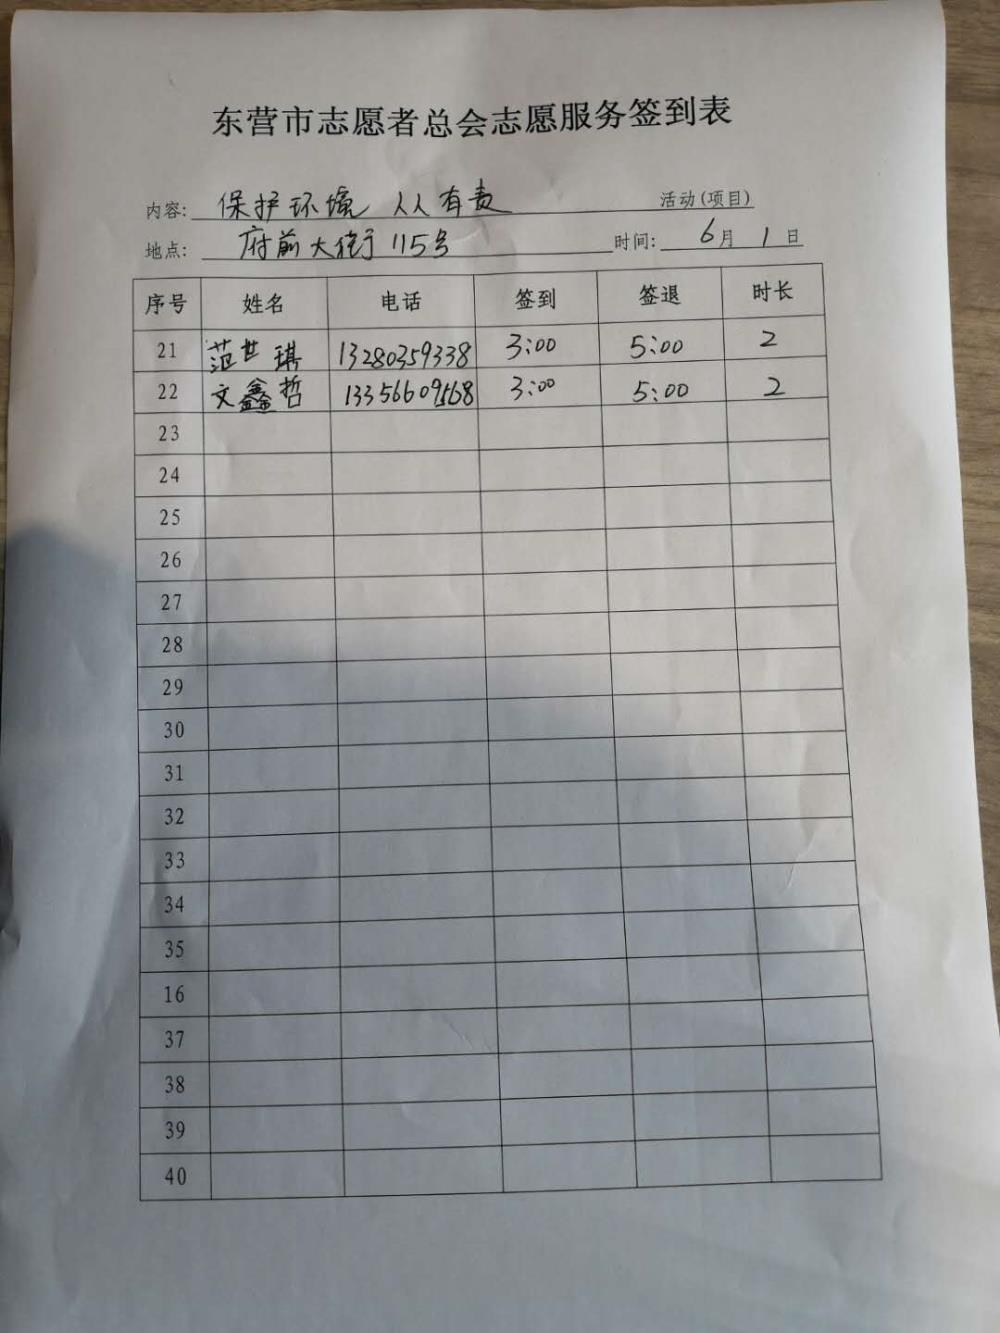 东营市志愿者总会志愿服务签到表
内容: 保护环境 人人有责 活动(项目)
地点: 府前大街115号 时间: 6月1日
序号 姓名 电话 签到 签退 时长
21 范世琪 13280359338 3:00 5:00 2
22 文鑫哲 13356609568 3:00 5:00 2
23
24
25
26
27
28
29
30
31
32
33
34
35
16
37
38
39
40